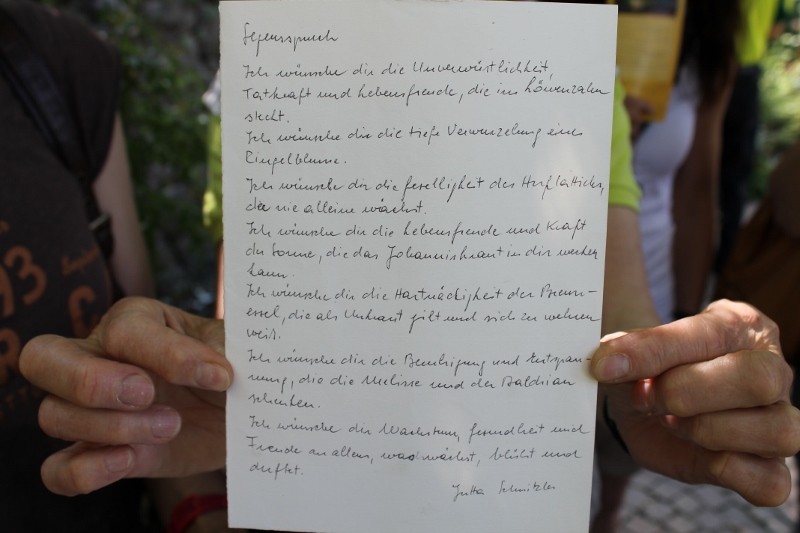 Segensspruch
Ich wünsche dir die Unverwüstlichkeit,
Tatkraft und Lebensfreude, die im Löwenzahn
steckt.
Ich wünsche dir die tiefe Verwurzelung einer
Ringelblume.
Ich wünsche dir die Geselligkeit des Huflattichs,
der nie alleine wächst.
Ich wünsche dir die Lebensfreude und Kraft
der Sonne, die das Johanniskraut in dir wecken
kann.
Ich wünsche dir die Hartnäckigkeit der Brenn-
essel, die als Unkraut gilt und sich zu wehren
weiß.
Ich wünsche dir die Beruhigung und Entspan-
nung, die die Melisse und der Baldrian
schenken.
Ich wünsche dir Wachstum, Gesundheit und
Freude an allem, was wächst, blüht und
duftet.
Jutta Schnitzler
93